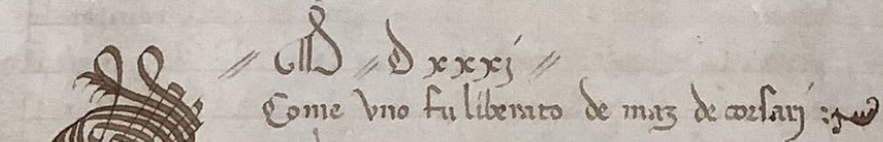 // M // D xxxj //
Come vno fu liberato de maz de corsarj :~